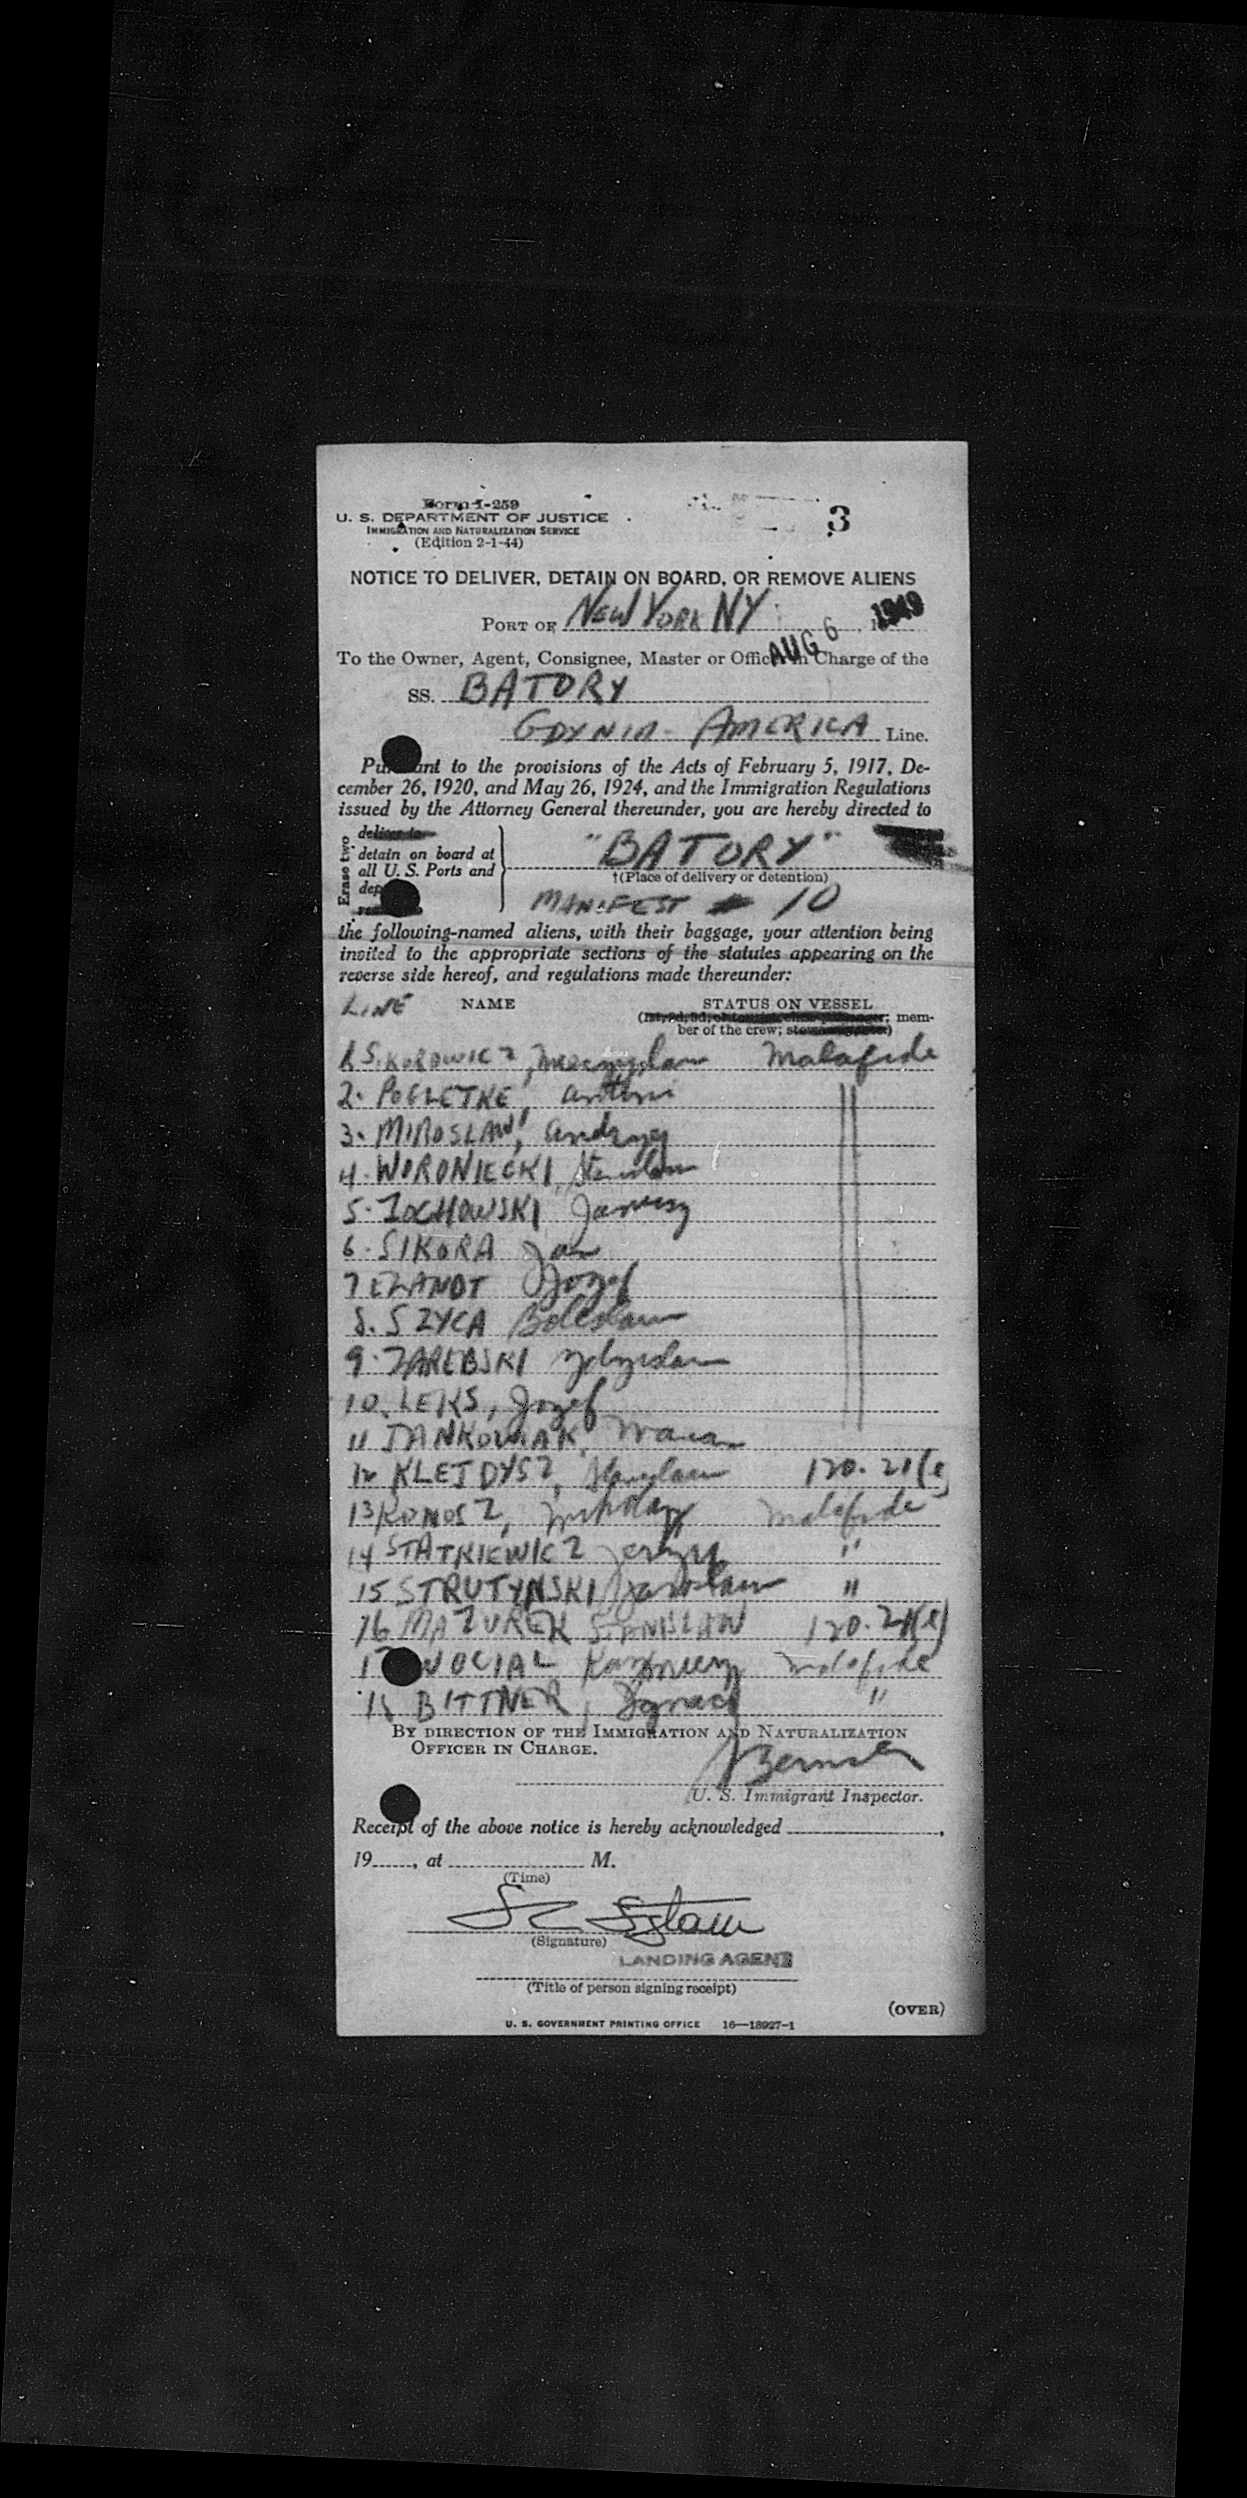 Form I-259
3
U. S. DEPARTMENT OF JUSTICE
IMMIGRATION AND NATURALIZATION SERVICE
(Edition 2-1-44)
NOTICE TO DELIVER, DETAIN ON BOARD, OR REMOVE ALIENS
PORT OF NEW YORK NY AUG 6 1949
To the Owner, Agent, Consignee, Master or Officer in Charge of the
SS. BATORY
GDYNIA - AMERICA Line.
Pursuant to the provisions of the Acts of February 5, 1917, De-
cember 26, 1920, and May 26, 1924, and the Immigration Regulations
issued by the Attorney General thereunder, you are hereby directed to
Erase two
deliver to
detain on board at
all U. S. Ports and
"BATORY"
†(Place of delivery or detention)
MANIFEST # 10
the following-named aliens, with their baggage, your attention being
invited to the appropriate sections of the statutes appearing on the
reverse side hereof, and regulations made thereunder:
LINE NAME STATUS ON VESSEL
mem-
ber of the crew;
1 SIKOROWICZ, Mieczyslaw Malafide
2. POGLETKE, Antoni "
3. MIROSLAW, Andrzej
4. WORONIECKI, Stanislaw
5. ZOCHOWSKI Janusz
6. SIKORA Jan
7 ELANDT Jozef
8. SZYCA Boleslaw
9. ZAREBSKI Zdzislaw
10. LEKS, Jozef
11 JANKOWIAK,
12 KLEJDYSZ, Stanislaw 120.21(e)
13 KONOSZ, Mikolaj Malafide
14 STATKIEWICZ Jerzy "
15 STRUTYNSKI Jaroslaw "
16 MAZUREK STANISLAW 120.21(e)
17 NOCIAL Kazimierz Malafide
18 BITTNER, Ignacy "
BY DIRECTION OF THE IMMIGRATION AND NATURALIZATION
OFFICER IN CHARGE.
U. S. Immigrant Inspector.
Receipt of the above notice is hereby acknowledged ,
19 , at M.
(Time)
(Signature)
LANDING AGENT
(Title of person signing receipt)
(OVER)
U. S. GOVERNMENT PRINTING OFFICE 16—18927-1